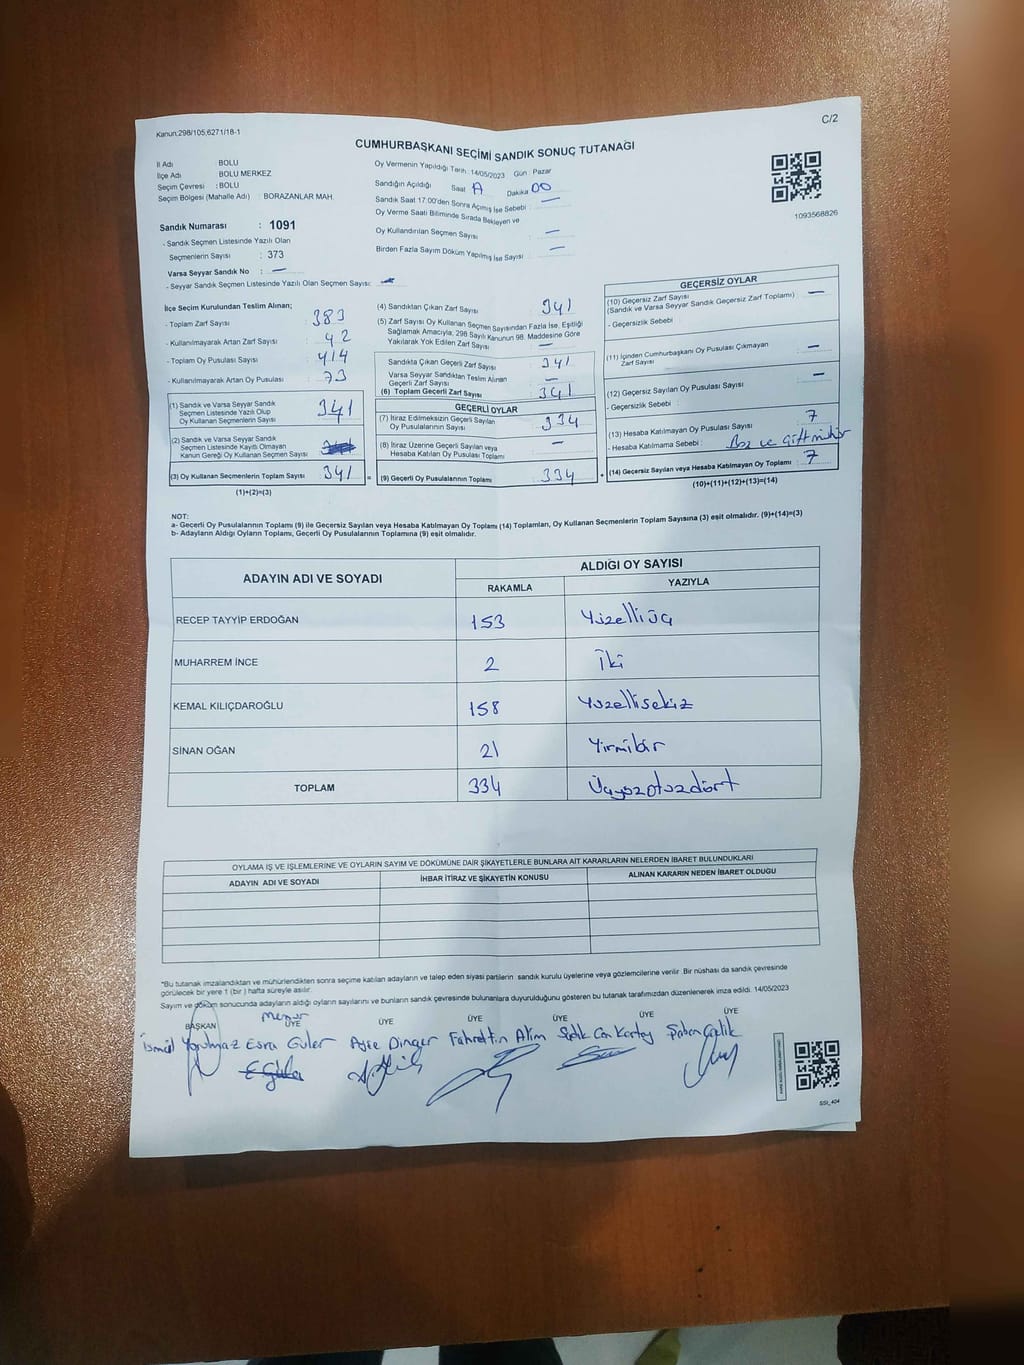 Kanun;298/105,6271/18-1
C/2
CUMHURBAŞKANI SEÇİMİ SANDIK SONUÇ TUTANAĞI
İl Adı : BOLU
İlçe Adı : BOLU MERKEZ
Seçim Çevresi : BOLU
Seçim Bölgesi (Mahalle Adı) : BORAZANLAR MAH.
Oy Vermenin Yapıldığı Tarih : 14/05/2023 Gün : Pazar
Sandığın Açıldığı Saat Dakika 00
Sandık Saat 17.00'den Sonra Açılmış İse Sebebi : —
Oy Verme Saati Bitiminde Sırada Bekleyen ve
Oy Kullandırılan Seçmen Sayısı : —
Birden Fazla Sayım Döküm Yapılmış İse Sayısı : —
1093568826
Sandık Numarası : 1091
- Sandık Seçmen Listesinde Yazılı Olan
Seçmenlerin Sayısı : 373
Varsa Seyyar Sandık No : —
- Seyyar Sandık Seçmen Listesinde Yazılı Olan Seçmen Sayısı:
İlçe Seçim Kurulundan Teslim Alınan;
- Toplam Zarf Sayısı : 383
- Kullanılmayarak Artan Zarf Sayısı : 42
- Toplam Oy Pusulası Sayısı : 414
- Kullanılmayarak Artan Oy Pusulası : 73
(1) Sandık ve Varsa Seyyar Sandık
Seçmen Listesinde Yazılı Olup
Oy Kullanan Seçmenlerin Sayısı : 341
(2) Sandık ve Varsa Seyyar Sandık
Seçmen Listesinde Kayıtlı Olmayan
Kanun Gereği Oy Kullanan Seçmen Sayısı :
(3) Oy Kullanan Seçmenlerin Toplam Sayısı : 341
(1)+(2)=(3)
(4) Sandıktan Çıkan Zarf Sayısı : 341
(5) Zarf Sayısı Oy Kullanan Seçmen Sayısından Fazla İse, Eşitliği
Sağlamak Amacıyla; 298 Sayılı Kanunun 98. Maddesine Göre
Yakılarak Yok Edilen Zarf Sayısı : —
Sandıkta Çıkan Geçerli Zarf Sayısı : 341
Varsa Seyyar Sandıktan Teslim Alınan
Geçerli Zarf Sayısı : —
(6) Toplam Geçerli Zarf Sayısı : 341
GEÇERLİ OYLAR
(7) İtiraz Edilmeksizin Geçerli Sayılan
Oy Pusulalarının Sayısı : 334
(8) İtiraz Üzerine Geçerli Sayılan veya
Hesaba Katılan Oy Pusulası Toplamı : —
= (9) Geçerli Oy Pusulalarının Toplamı : 334
GEÇERSİZ OYLAR
(10) Geçersiz Zarf Sayısı : —
(Sandık ve Varsa Seyyar Sandık Geçersiz Zarf Toplamı)
- Geçersizlik Sebebi :
(11) İçinden Cumhurbaşkanı Oy Pusulası Çıkmayan
Zarf Sayısı : —
(12) Geçersiz Sayılan Oy Pusulası Sayısı : —
- Geçersizlik Sebebi :
(13) Hesaba Katılmayan Oy Pusulası Sayısı : 7
- Hesaba Katılmama Sebebi : Boz ve Çift mühür
+ (14) Geçersiz Sayılan veya Hesaba Katılmayan Oy Toplamı : 7
(10)+(11)+(12)+(13)=(14)
NOT:
a- Geçerli Oy Pusulalarının Toplamı (9) ile Geçersiz Sayılan veya Hesaba Katılmayan Oy Toplamı (14) Toplamları, Oy Kullanan Seçmenlerin Toplam Sayısına (3) eşit olmalıdır. (9)+(14)=(3)
b- Adayların Aldığı Oyların Toplamı, Geçerli Oy Pusulalarının Toplamına (9) eşit olmalıdır.
ADAYIN ADI VE SOYADI
ALDIĞI OY SAYISI
RAKAMLA YAZIYLA
RECEP TAYYİP ERDOĞAN 153 Yüzelliüç
MUHARREM İNCE 2 İki
KEMAL KILIÇDAROĞLU 158 Yüzellisekiz
SİNAN OĞAN 21 Yirmibir
TOPLAM 334 Üçyüzotuzdört
OYLAMA İŞ VE İŞLEMLERİNE VE OYLARIN SAYIM VE DÖKÜMÜNE DAİR ŞİKAYETLERLE BUNLARA AİT KARARLARIN NELERDEN İBARET BULUNDUKLARI
ADAYIN ADI VE SOYADI İHBAR İTİRAZ VE ŞİKAYETİN KONUSU ALINAN KARARIN NEDEN İBARET OLDUĞU
*Bu tutanak imzalandıktan ve mühürlendikten sonra seçime katılan adayların ve talep eden siyasi partilerin sandık kurulu üyelerine veya gözlemcilerine verilir. Bir nüshası da sandık çevresinde
görülecek bir yere 1 (bir) hafta süreyle asılır.
Sayım ve döküm sonucunda adayların aldığı oyların sayılarını ve bunların sandık çevresinde bulunanlara duyurulduğunu gösteren bu tutanak tarafımızdan düzenlenerek imza edildi. 14/05/2023
BAŞKAN Memur ÜYE ÜYE ÜYE ÜYE ÜYE ÜYE
İsmail Yorulmaz Esra Güler Ayşe Dinçer Fahrettin Alim Sadık Can Kartoy Şaban Çaklık
E Güler
SSİ_404